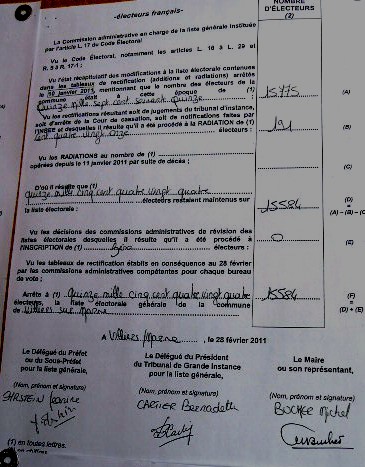 -électeurs français-
NOMBRE
D'ÉLECTEURS
(2)
La Commission administrative en charge de la liste générale instituée
par l'article L. 17 du Code Electoral
Vu le Code Électoral, notamment les articles L. 16 à L. 29 et
R. 5 à R. 17-1 ;
Vu l'état récapitulatif des modifications à la liste électorale contenues
dans les tableaux de rectification (additions et radiations) arrêtés
le 10 janvier 2011, mentionnant que le nombre des électeurs de la
commune était à cette époque de (1)
Quinze mille sept cent soixante quinze
15775 (A)
Vu les rectifications résultant soit de jugements du tribunal d'instance,
soit d'arrêts de la Cour de cassation, soit de notifications faites par
l'INSEE et desquelles il résulte qu'il a été procédé à la RADIATION de (1)
Cent quatre vingt onze électeurs :
191 (B)
Vu les RADIATIONS au nombre de (1)
opérées depuis le 11 janvier 2011 par suite de décès ;
(C)
D'où il résulte que (1)
quinze mille cinq cent quatre vingt quatre
électeurs restaient maintenus sur
la liste électorale :
15584 (D)
(A) – (B) – (C)
Vu les décisions des commissions administratives de révision des
listes électorales desquelles il résulte qu'il a été procédé à
l'INSCRIPTION de (1) Zéro électeurs :
0 (E)
Vu les tableaux de rectification établis en conséquence au 28 février
par les commissions administratives compétentes pour chaque bureau
de vote ;
Arrête à (1) Quinze mille cinq cent quatre vingt quatre
électeurs, la liste électorale générale de la commune
de Villiers sur Marne
15584 (F)
=
(D) + (E)
A Villiers/Marne, le 28 février 2011
Le Délégué du Préfet
ou du Sous-Préfet
pour la liste générale,
Le Délégué du Président
du Tribunal de Grande Instance
pour la liste générale,
Le Maire
ou son représentant,
(Nom, prénom et signature)
(Nom, prénom et signature)
(Nom, prénom et signature)
CARTIER Bernadette
(1) en toutes lettres.